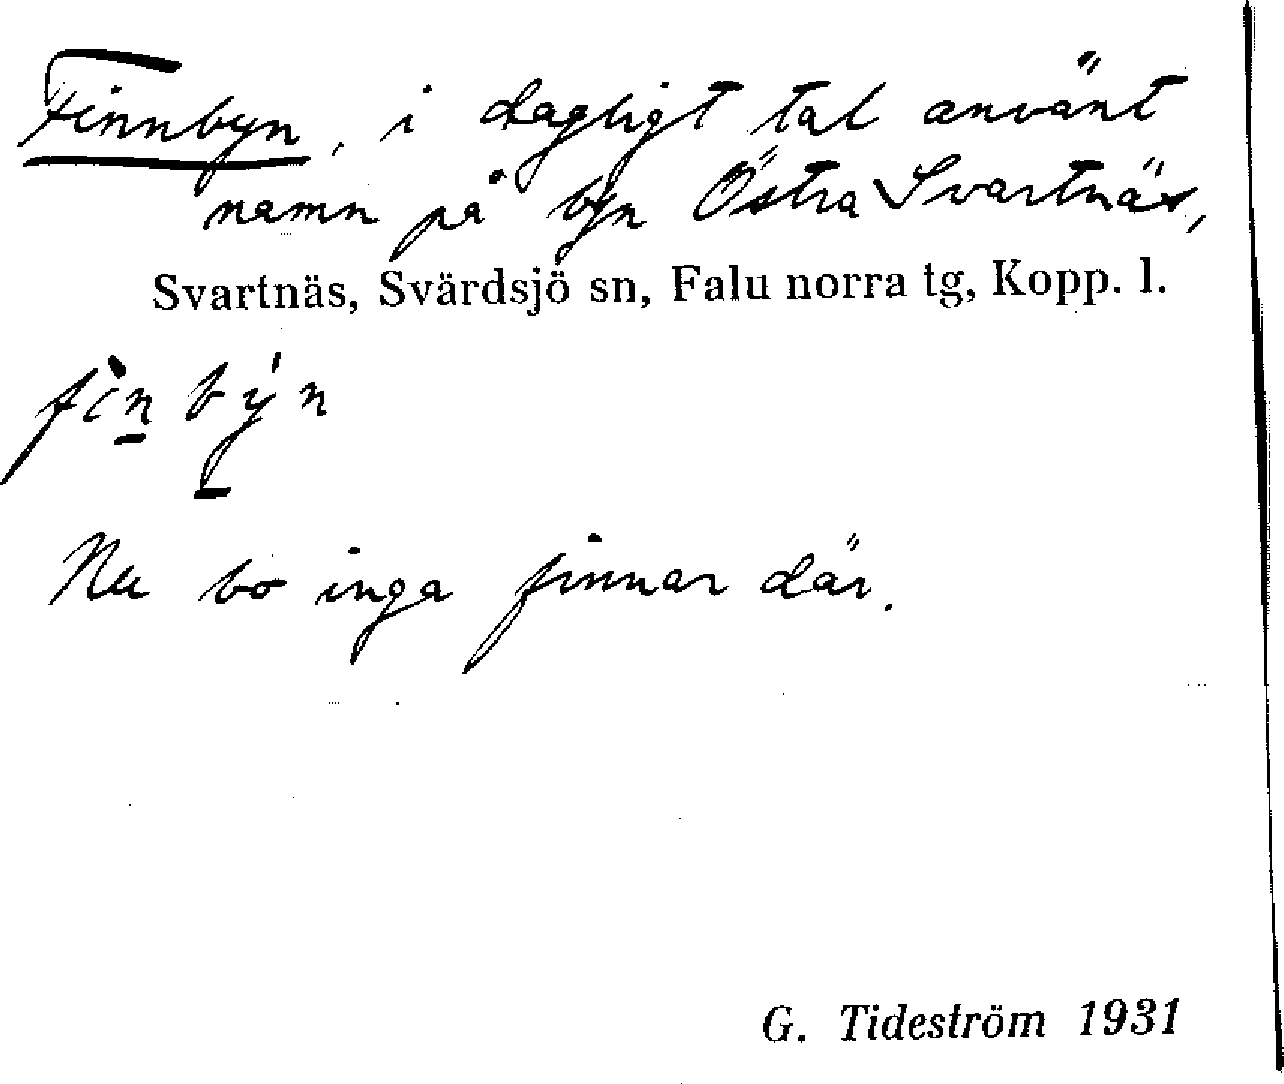 Finnbyn, i dagligt tal använt
namn på byn Östra Svartnäs,
Svartnäs, Svärdsjö sn, Falu norra tg, Kopp. l.
fìnbýn
Nu bo inga finnar där.
G. Tideström 1931